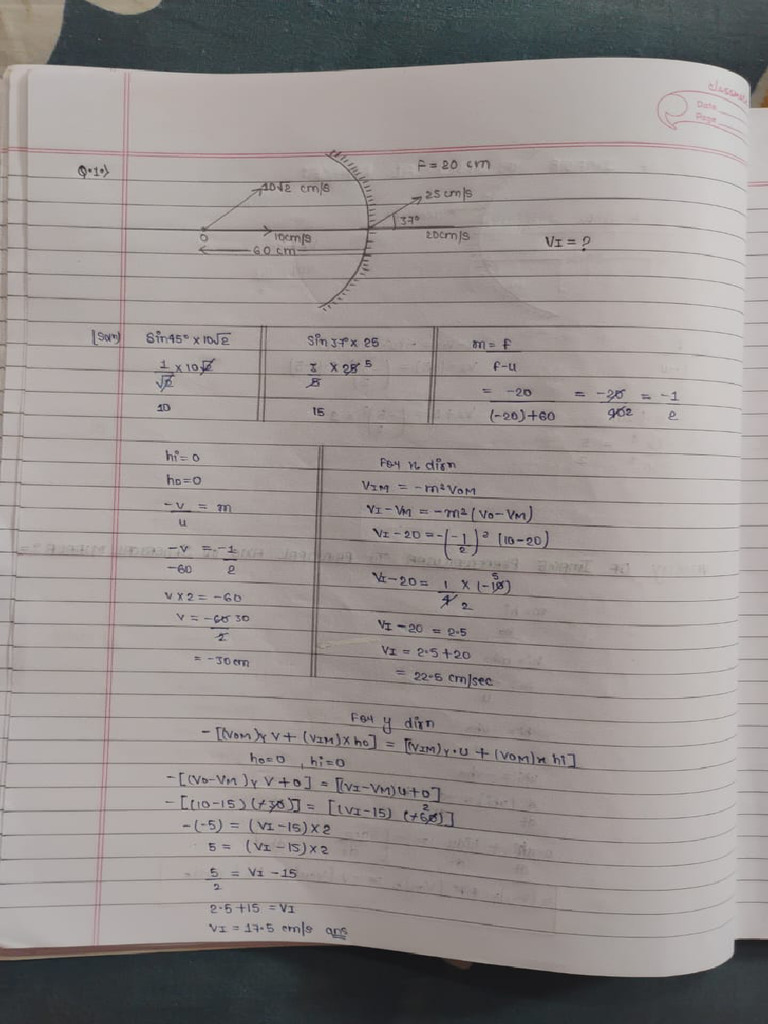 classmate
Date
Page
Q.1.>
F = 20 cm
10√2 cm/s
25 cm/s
37°
O
10cm/s
20cm/s
60 cm
VI = ?
(Soln)
Sin45° x 10√2
1/√2 x 10√2
10
Sin 37° x 25
3/5 x 25 5
15
m = f/f-u
= -20/(-20)+60 = -20/402 = -1/2
hi = 0
ho = 0
-v/u = m
-v/-60 = -1/2
v x 2 = -60
v = -60 30/2
= -30cm
For x dirn
VIM = -m² VOM
VI - VM = -m² (VO - VM)
VI - 20 = -(-1/2)² (10-20)
VI - 20 = 1/4 2 x (-10) 5
VI - 20 = 2.5
VI = 2.5 + 20
= 22.5 cm/sec
For y dirn
- [(VOM)y V + (VIM)x ho] = [(VIM)y . U + (VOM)x hi]
ho = 0 , hi = 0
- [(VO - VM)y V + 0] = [(VI - VM) U + 0]
- [(10 - 15) (-30)] = [(VI - 15) (-60) 2]
- (-5) = (VI - 15) x 2
5 = (VI - 15) x 2
5/2 = VI - 15
2.5 + 15 = VI
VI = 17.5 cm/s ans